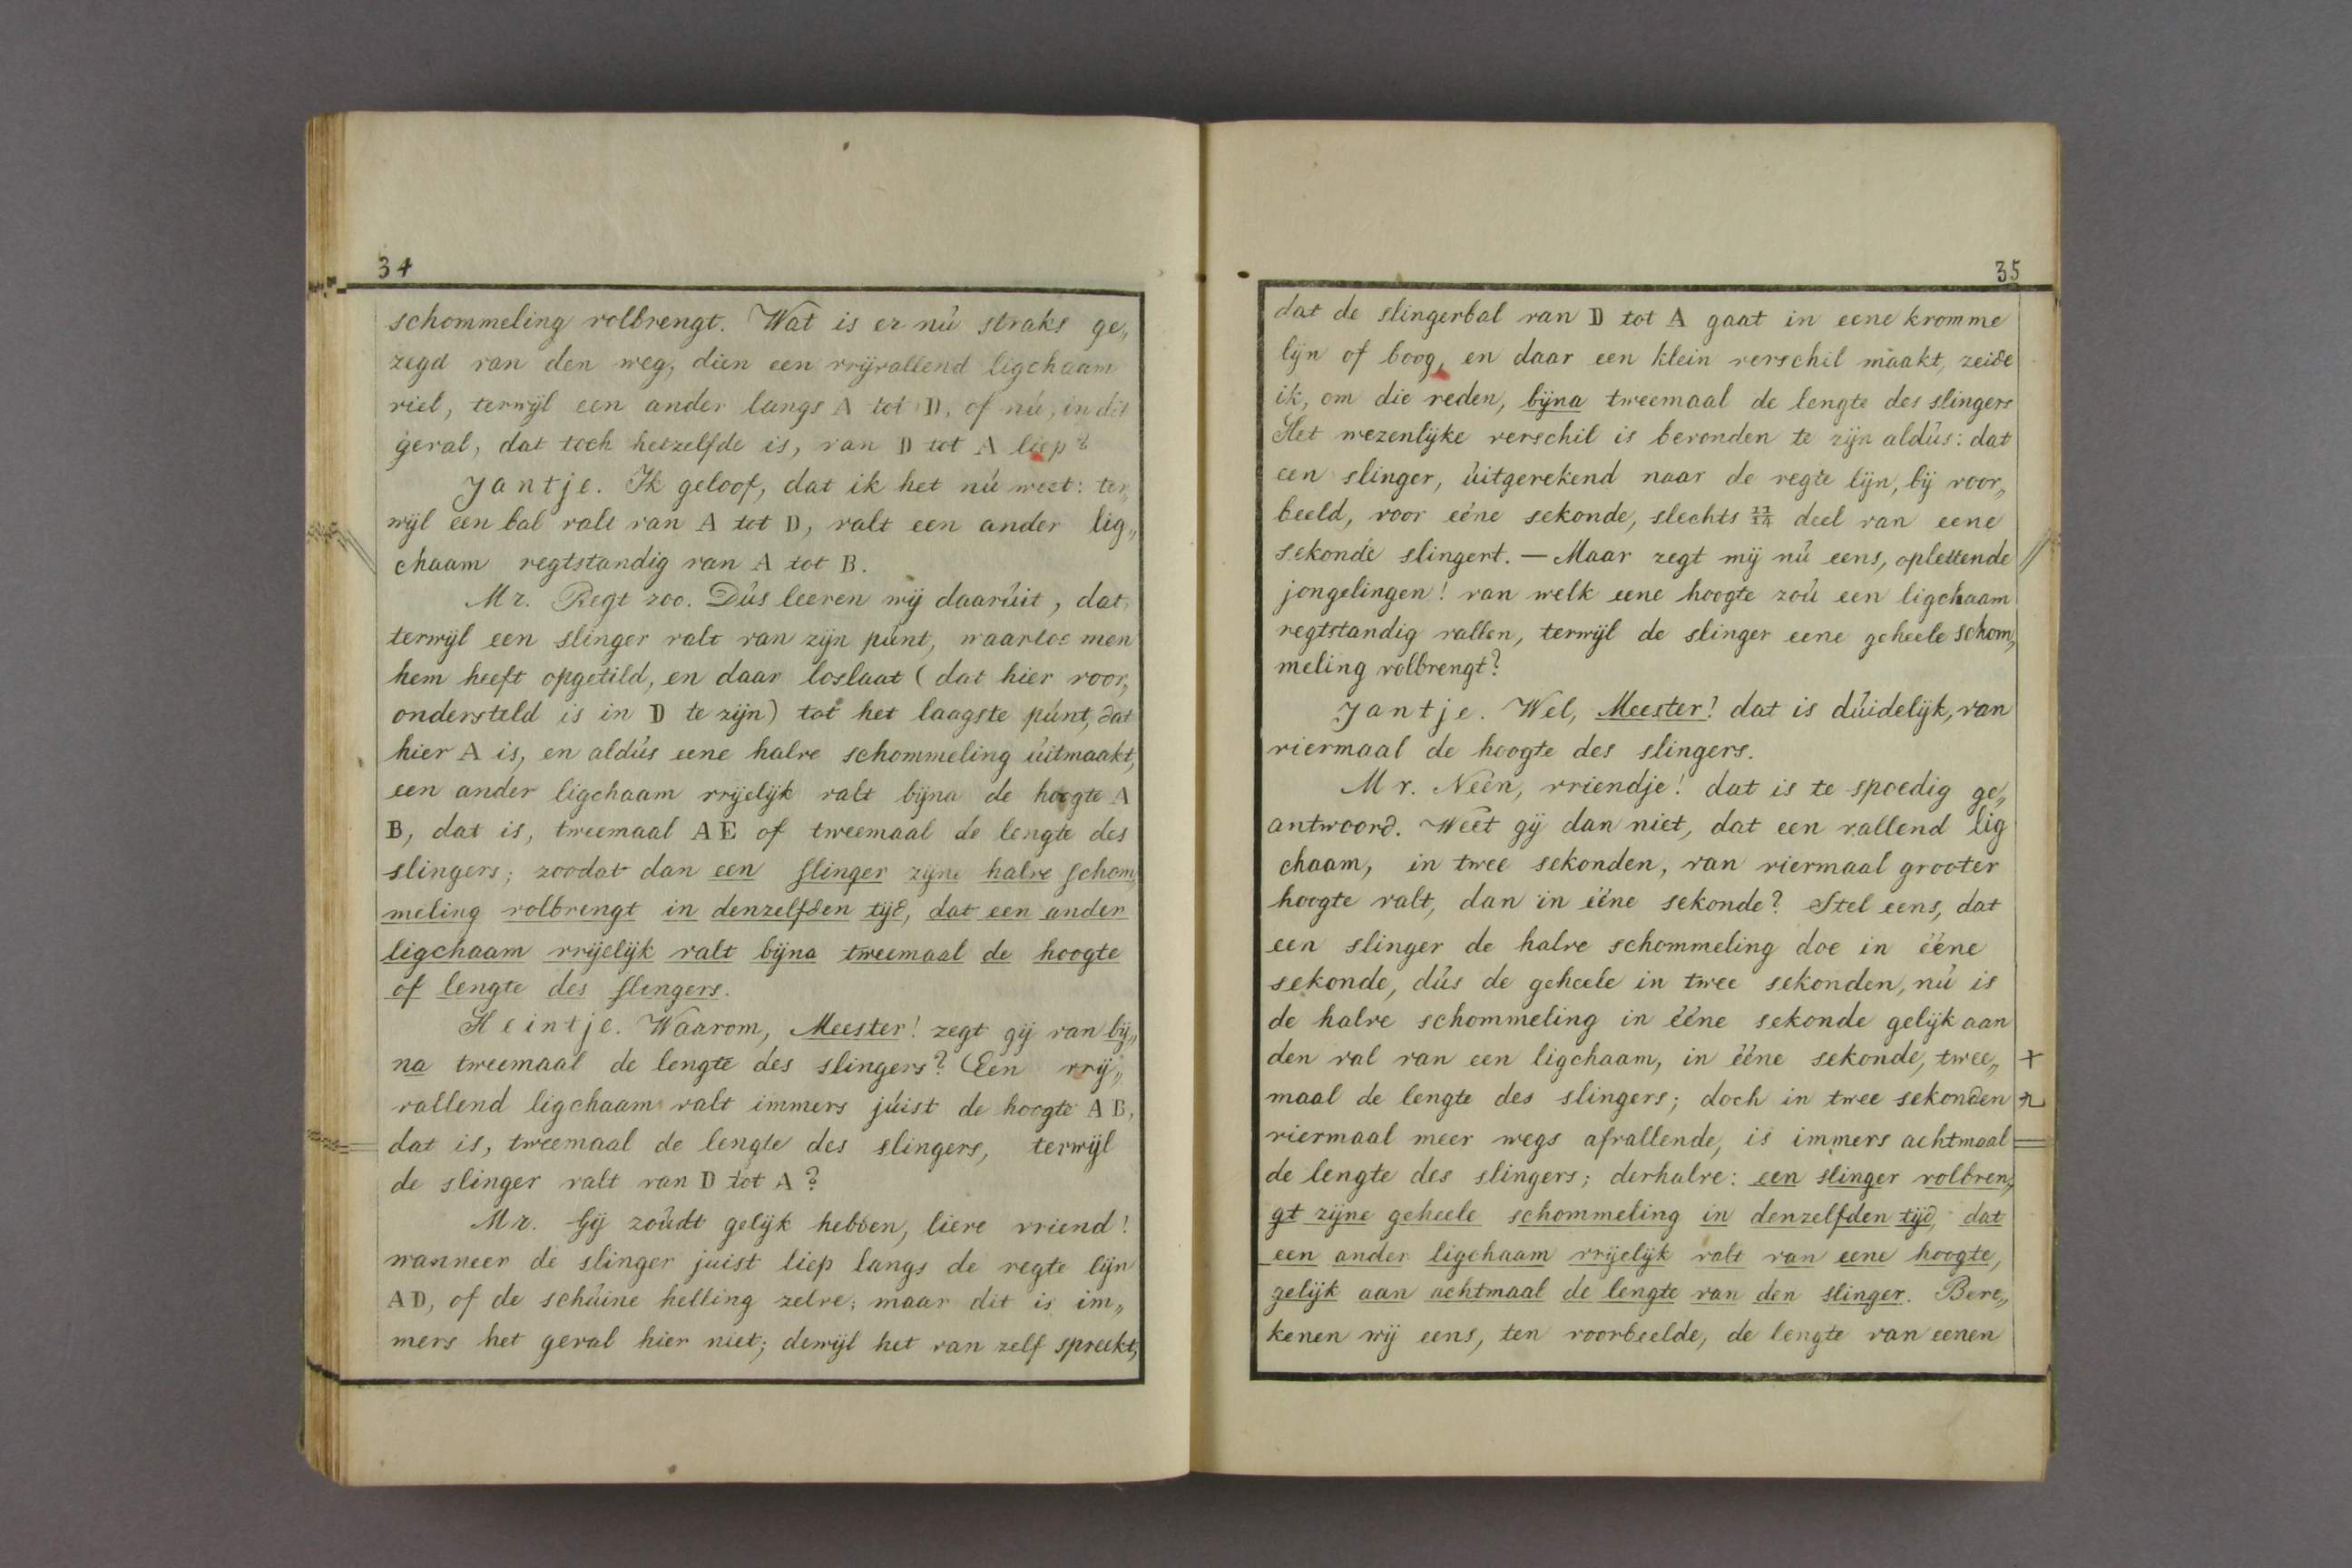 34
schommeling volbrengt. Wat is er nú straks ge„
zegd van den weg, dien een vrijvallend ligchaam
viel, terwijl een ander langs A tot D, of nú, in dit
geval, dat toch hetzelfde is, van D tot A liep?
Jantje. Ik geloof, dat ik het nú weet: ter„
wijl een bal valt van A tot D, valt een ander lig„
chaam regtstandig van A tot B.
Mr. Regt zoo. Dús leeren wij daarúit, dat,
terwijl een slinger valt van zijn púnt, waartoe men
hem heeft opgetild, en daar loslaat (dat hier voor„
ondersteld is in D te zijn) tot het laagste púnt, dat
hier A is, en aldús eene halve schommeling úitmaakt,
een ander ligchaam vrijelijk valt bijna de hoogte A
B, dat is, tweemaal AE of tweemaal de lengte des
slingers; zoodat dan een slinger zijne halve schom„
meling volbrengt in denzelfden tijd, dat een ander
ligchaam vrijelijk valt bijna tweemaal de hoogte
of lengte des slingers.
Heintje. Waarom, Meester! zegt gij van bij„
na tweemaal de lengte des slingers? Een vrij„
vallend ligchaam valt immers júist de hoogte AB,
dat is, tweemaal de lengte des slingers, terwijl
de slinger valt van D tot A?
Mr. Gij zoúdt gelijk hebben, lieve vriend!
wanneer de slinger juist liep langs de regte lijn
AD, of de schúine helling zelve; maar dit is im„
mers het geval hier niet; dewijl het van zelf spreekt,
35
dat de slingerbal van D tot A gaat in eene kromme
lijn of boog, en daar een klein verschil maakt, zeide
ik, om die reden, bijna tweemaal de lengte des slingers
Het wezenlijke verschil is bevonden te zijn aldús: dat
een slinger, úitgerekend naar de regte lijn, bij voor„
beeld, voor ééne sekonde, slechts 11/14 deel van eene
sekonde slingert. — Maar zegt mij nú eens, oplettende
jongelingen! van welk eene hoogte zoú een ligchaam
regtstandig vallen, terwijl de slinger eene geheele schom„
meling volbrengt?
Jantje. Wel, Meester! dat is dúidelijk, van
viermaal de hoogte des slingers.
Mr. Neen, vriendje! dat is te spoedig ge„
antwoord. Weet gij dan niet, dat een vallend lig
chaam, in twee sekonden, van viermaal grooter
hoogte valt, dan in ééne sekonde? Stel eens, dat
een slinger de halve schommeling doe in ééne
sekonde, dús de geheele in twee sekonden, nú is
de halve schommeling in ééne sekonde gelijk aan
den val van een ligchaam, in ééne sekonde, twee„
maal de lengte des slingers; doch in twee sekonden
viermaal meer wegs afvallende, is immers achtmaal
de lengte des slingers; derhalve: een slinger volbren„
gt zijne geheele schommeling in denzelfden tijd, dat
een ander ligchaam vrijelijk valt van eene hoogte,
gelijk aan achtmaal de lengte van den slinger. Bere„
kenen wij eens, ten voorbeelde, de lengte van eenen